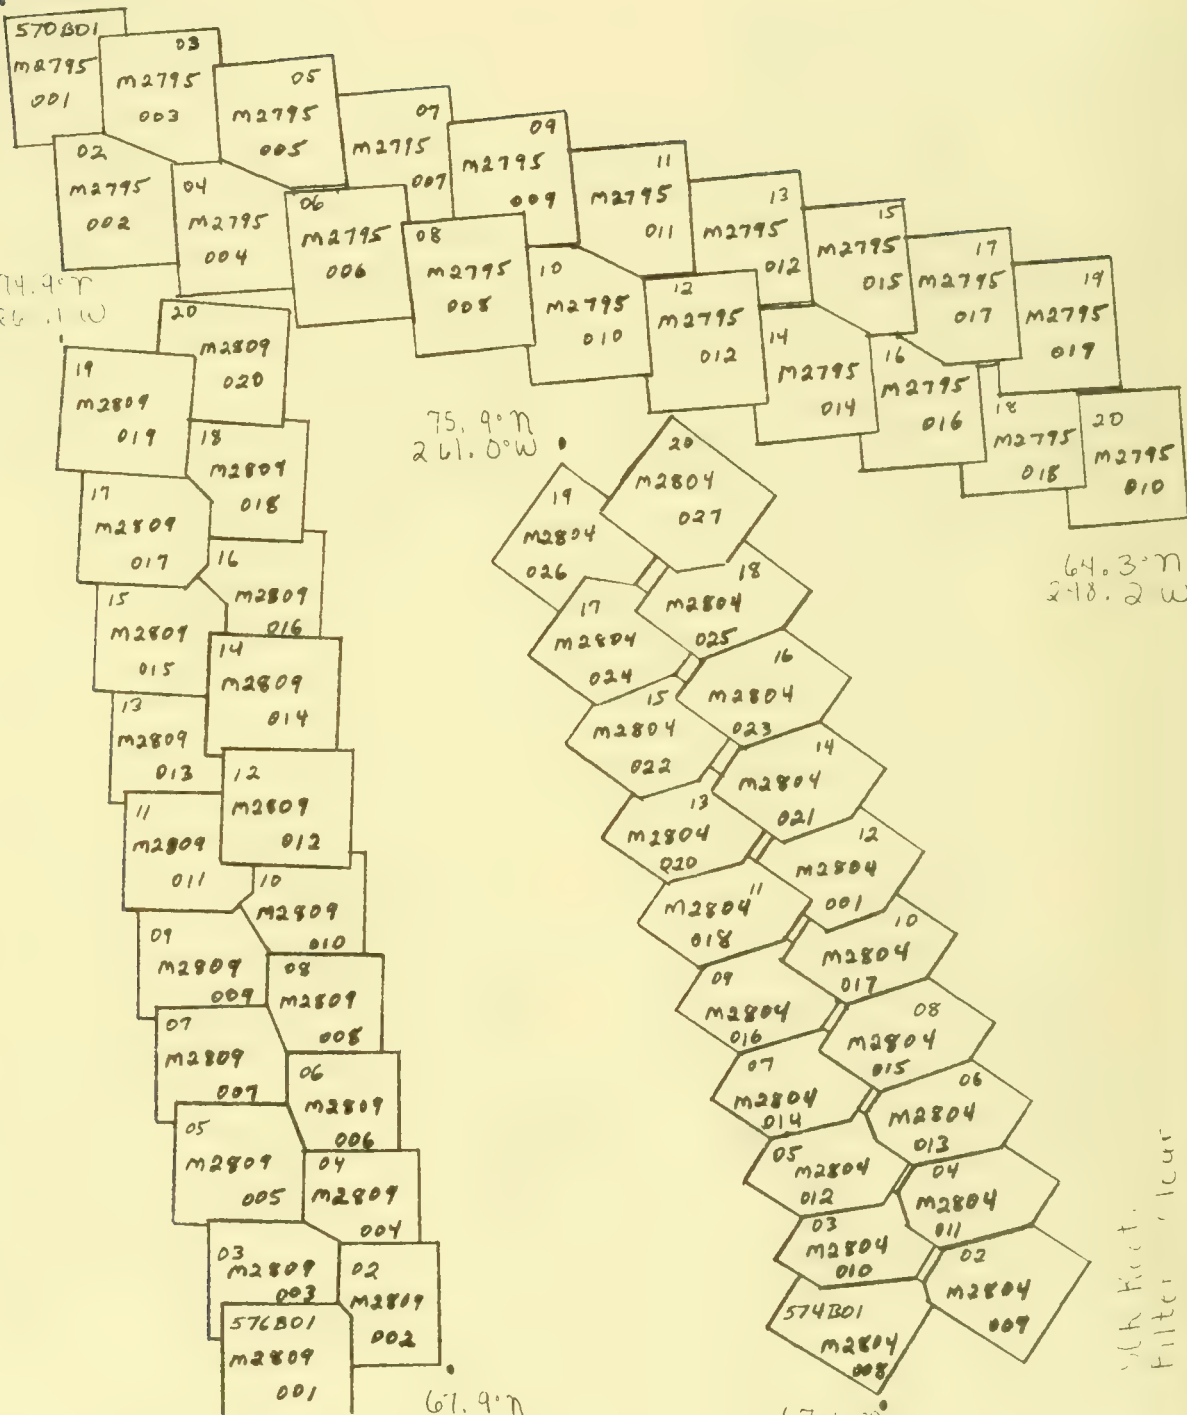 570B01
M2795
001
03
M2795
003
05
M2795
005
07
M2795
007
09
M2795
009
11
M2795
011
13
M2795
012
15
M2795
015
17
M2795
017
19
M2795
019
02
M2795
002
04
M2795
004
06
M2795
006
08
M2795
008
10
M2795
010
12
M2795
012
14
M2795
014
16
M2795
016
18
M2795
018
20
M2795
010
64.3°N
75.9°N
261.0°W
20
M2809
020
19
M2809
019
18
M2809
018
17
M2809
017
16
M2809
016
15
M2809
015
14
M2809
014
13
M2809
013
12
M2809
012
11
M2809
011
10
M2809
010
09
M2809
009
08
M2809
008
07
M2809
007
06
M2809
006
05
M2809
005
04
M2809
004
03
M2809
003
02
M2809
002
576B01
M2809
001
67.9°N
20
M2804
027
19
M2804
026
18
M2804
025
17
M2804
024
16
M2804
023
15
M2804
022
14
M2804
021
13
M2804
020
12
M2804
001
11
M2804
018
10
M2804
017
09
M2804
016
08
M2804
015
07
M2804
014
06
M2804
013
05
M2804
012
04
M2804
011
03
M2804
010
02
M2804
009
574B01
M2804
008
Filter